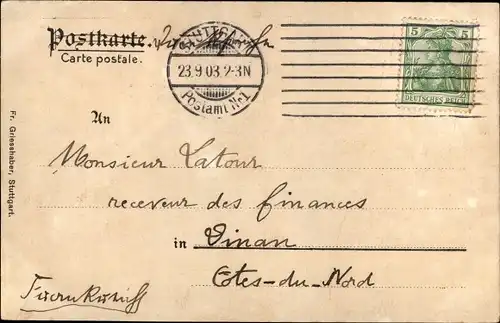 Postkarte.
Carte postale.
STUTTGART
23.9.03.2-3N
Postamt No1
5 5
DEUTSCHES REICH
An
Monsieur Latour
receveur des finances
in Dinan
Cotes-du-Nord
Fr. Griesshaber, Stuttgart.